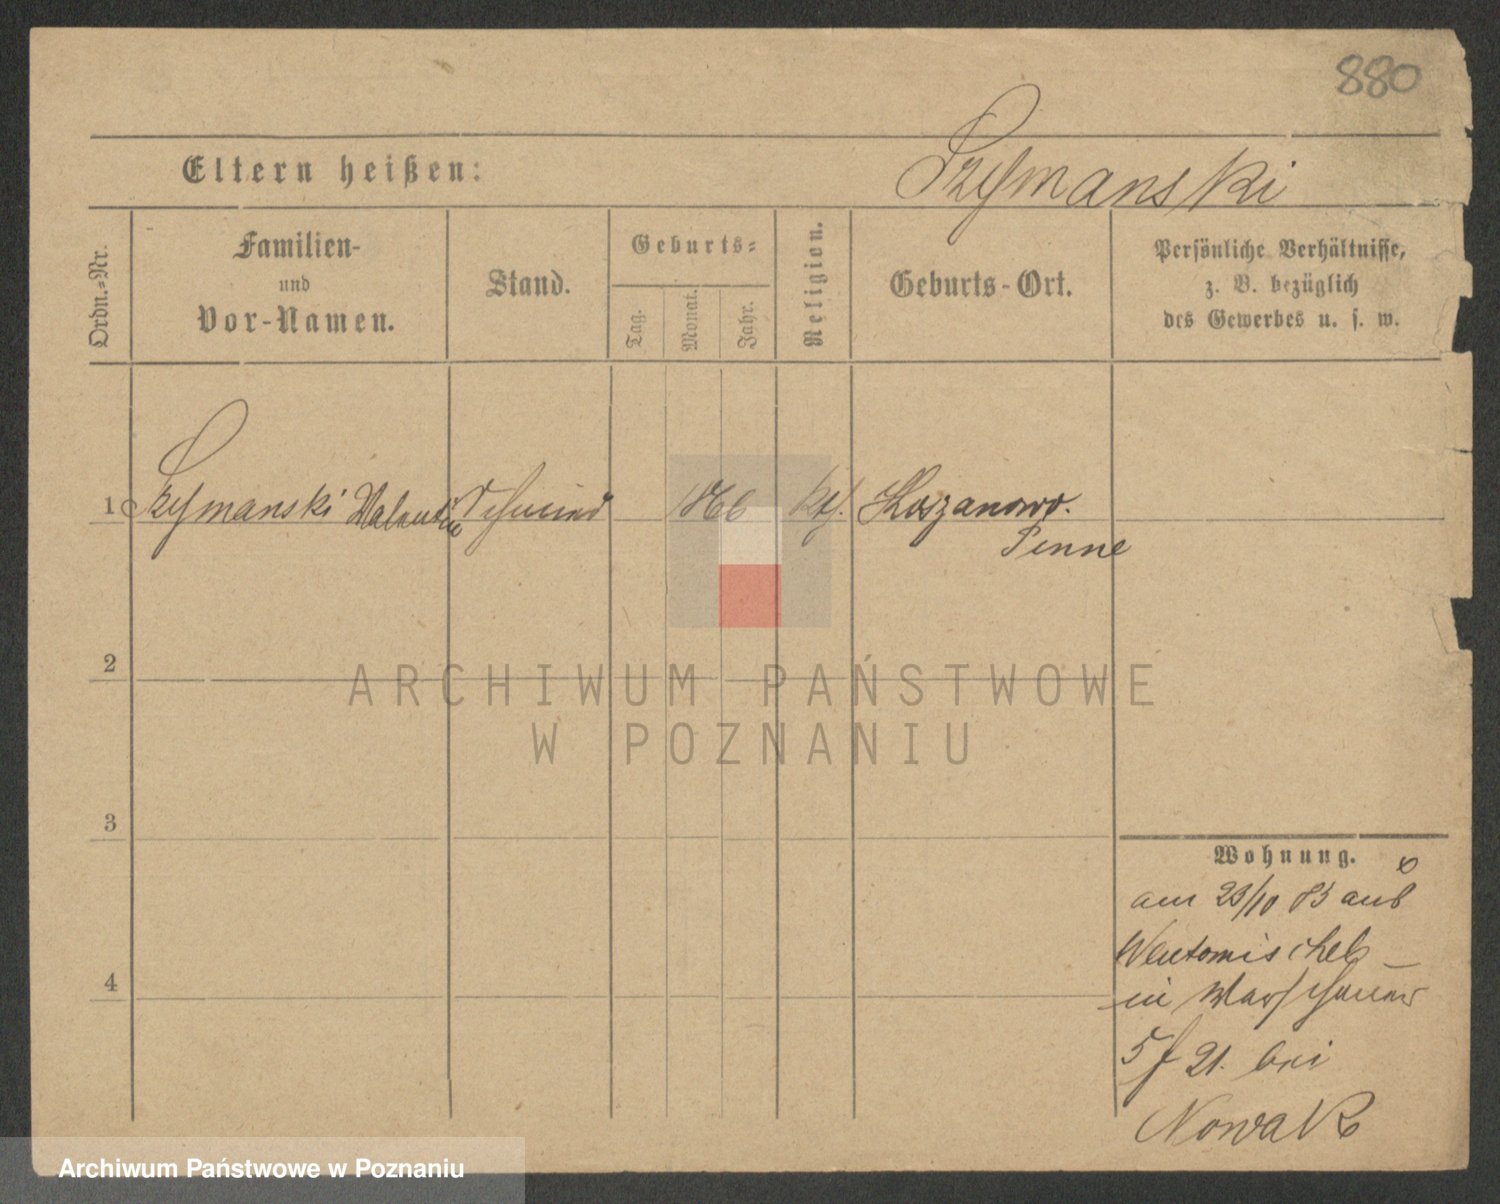 880
Eltern heißen: Szymanski
Ordn.-Nr.
Familien-
und
Vor-Namen.
Stand.
Geburts-
Tag.
Monat.
Jahr.
Religion.
Geburts-Ort.
Persönliche Verhältnisse,
z. B. bezüglich
des Gewerbes u. s. w.
1 Szymanski Valentin Schmied 1866 kth. Koszanowo.
Pinne
2
ARCHIWUM PAŃSTWOWE
W POZNANIU
3
4
Wohnung.
am 23/10 85 aus
Neutomischel
in Warschauer
21. bei
Nowak
Archiwum Państwowe w Poznaniu